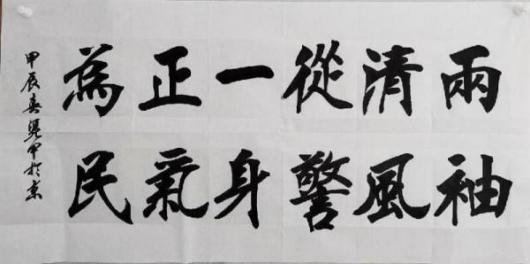 兩袖
清風
從警
一身
正氣
為民
甲辰春於京